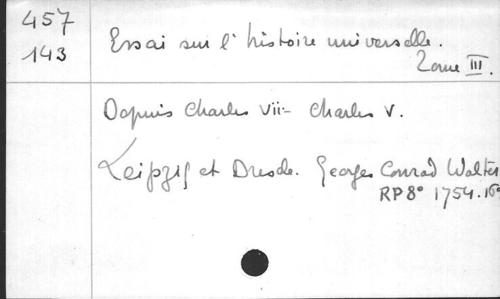 457
143
Essai sur l'histoire universelle.
Tome III.
Depuis Charles VII - Charles V.
Leipzig et Dresde. Georges Conrad Walter
RP 8° 1754. 16°